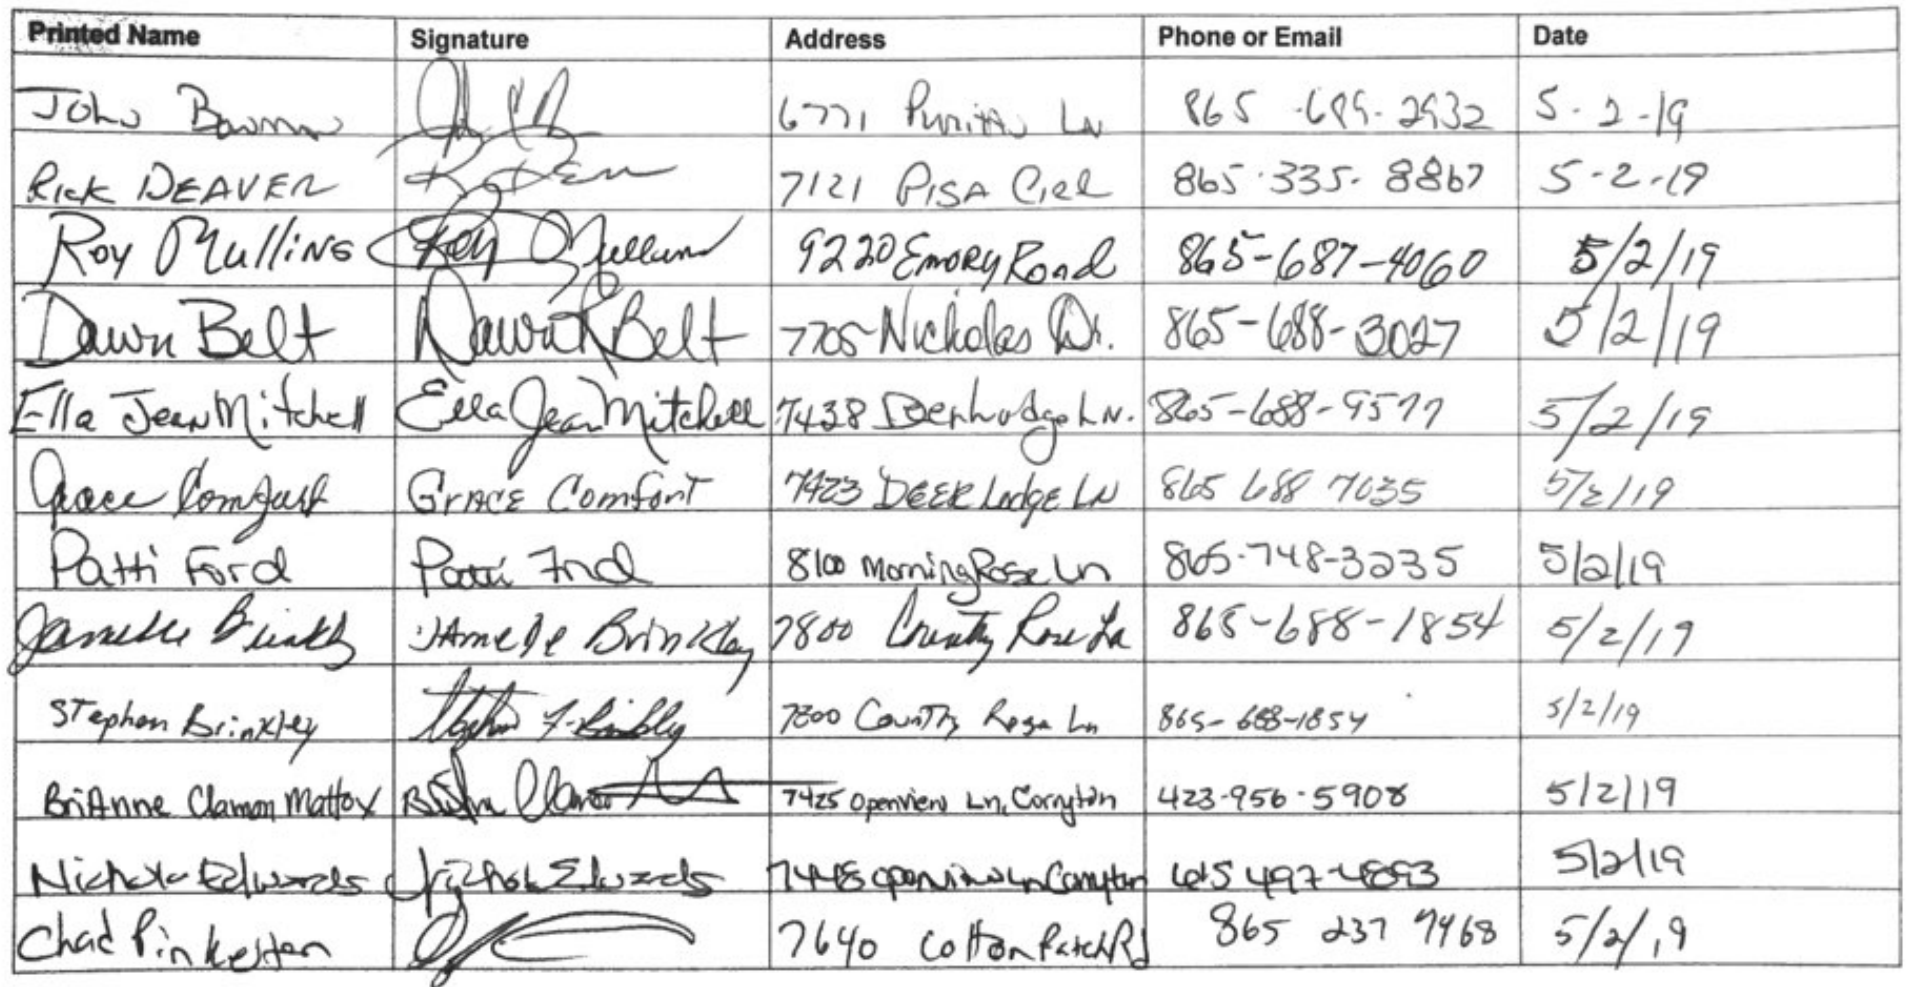 Printed Name Signature Address Phone or Email Date
John Bowman 6771 Puritan Ln 865-689-2932 5-2-19
Rick DEAVER 7121 PISA Circl 865-335-8867 5-2-19
Roy Mullins Roy Mullins 9220 Emory Road 865-687-4060 5/2/19
Dawn Belt Dawn R Belt 7705 Nicholas Dr. 865-688-3027 5/2/19
Ella Jean Mitchell Ella Jean Mitchell 7438 Ln. 865-688-9577 5/2/19
Grace Comfort GRACE Comfort 7423 DEER Lodge LN 865 688 7035 5/2/19
Patti Ford Patti Ford 8100 Morning Rose Ln 865-748-3235 5/2/19
Brinkley Brinkley 7800 Country Rose Ln 865-688-1854 5/2/19
Stephen Brinkley Stephen F. Brinkley 7800 Country Rose Ln 865-688-1854 5/2/19
BriAnne Clamon Mattox 7425 Openview Ln, Corryton 423-956-5908 5/2/19
Nichole Edwards Nichole Edwards 7448 Openview Ln Corryton 615 497-4893 5/2/19
Chad Pinkerton 7640 Cotton Patch Rd 865 237 9468 5/2/19